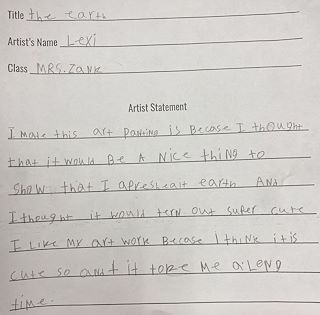 Title the earth
Artist's Name Lexi
Class MRS. ZANK
Artist Statement
I made this art Panting is Becase I thought
that it would Be A Nice thing to
Show that I apreshealt earth AND
I thought it would tern out super cute
I Like My art work Becase I think it is
cute so and it toke Me a LENG
time.